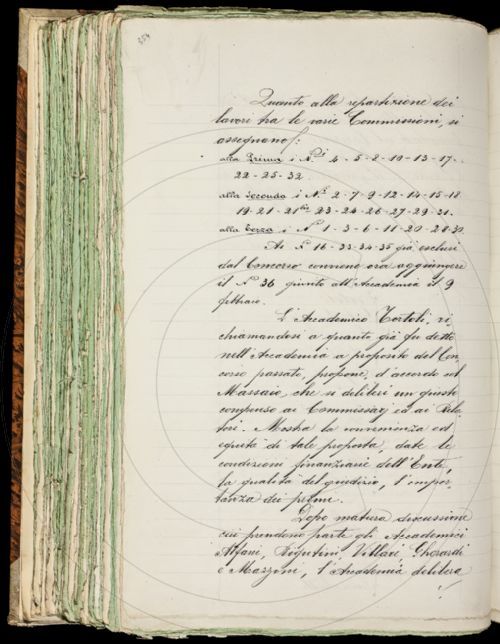 354
Quanto alla repartizione dei
lavori tra le varie Commissioni, si
assegnano:
alla Prima i N.i 4-5-8-10-13-17-
22-25-32.
alla Seconda i N.i 2-7-9-12-14-15-18
19-21-21bis 23-24-26-27-29-31.
alla Terza i N.i 1-3-6-11-20-28-30.
Ai N.i 16-33-34-35 già esclusi
dal Concorso conviene ora aggiungere
il N.o 36 giunto all'Accademia il 9
febbraio.
L'Accademico Tortoli, ri-
chiamandosi a quanto già fu detto
nell'Accademia a proposito del Con-
corso passato, propone, d'accordo col
Massaio, che si deliberi un giusto
compenso ai Commissarj ed ai Rela-
tori. Mostra la convenienza ed
equità di tale proposta, date le
condizioni finanziarie dell'Ente,
la qualità del giudizio, l'impor-
tanza dei premi.
Dopo matura discussione
cui prendono parte gli Accademici
Alfani, Rigutini, Villari, Gherardi
e Mazzoni, l'Accademia delibera